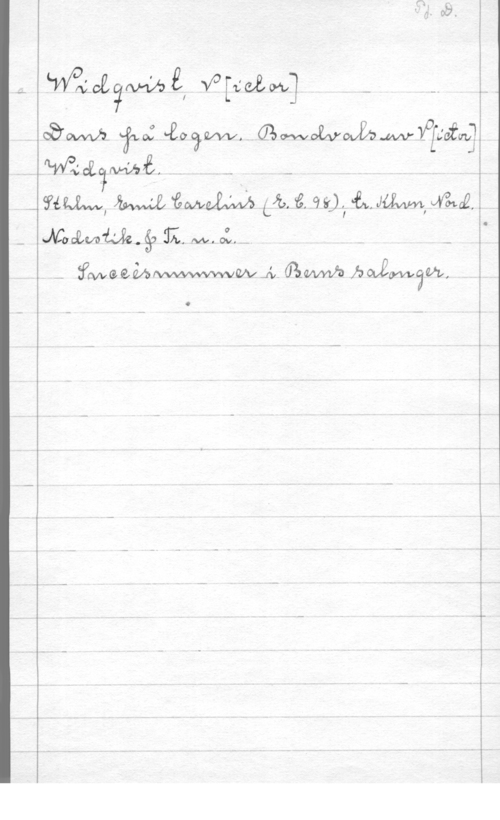 Pf. D.
Widqvist, V[ictor]
Dans på logen. Bondvals av V[ictor]
Widqvist.
Sthlm, Emil Carelius (E. C. 98); tr. Khvn, Nord.
Nodestik. & Tr. u. å.
Succèsnummer i Berns salonger.